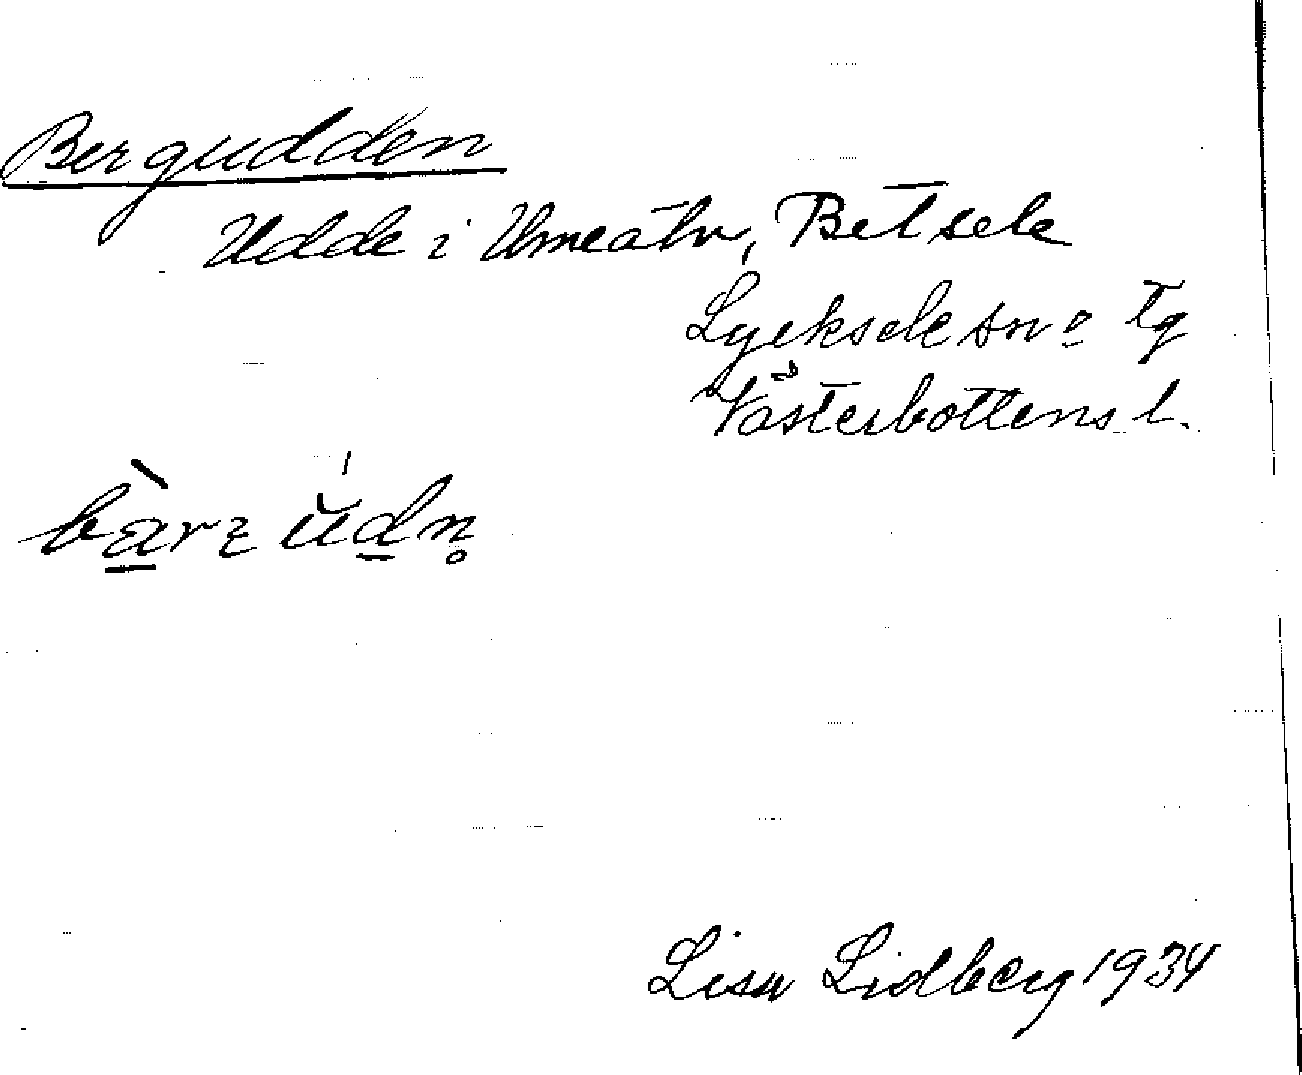 Bergudden
Udde i Umeälv, Betsele
Lycksele sn o tg
Västerbottens l.
Lisa Lidberg 1934